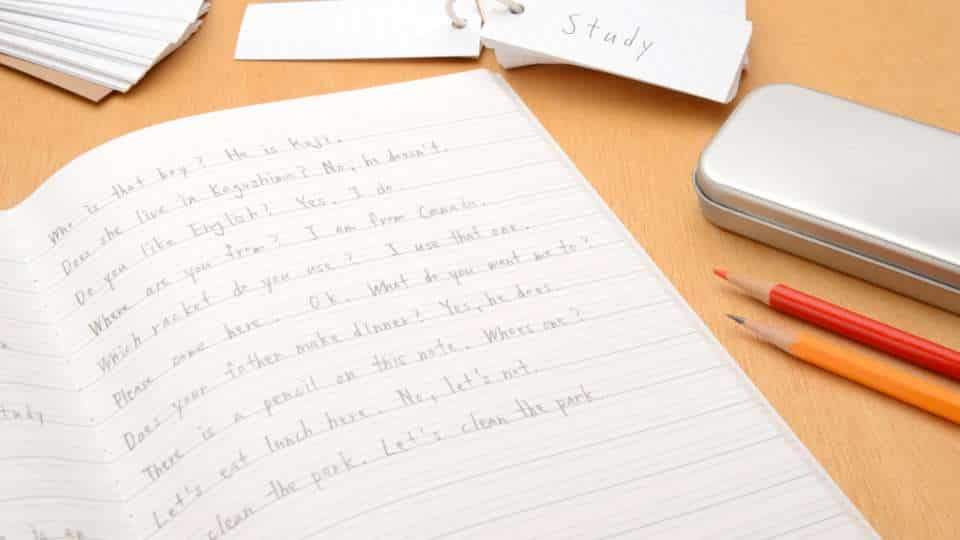 Study
Who is that boy? He is Koji.
Does she live in Kagoshima? No, he doesn't.
Do you like English? Yes. I do.
Where are you from? I am from Canada.
Which racket do you use? I use that one.
Please come here. Ok. What do you want me to?
Does your father make dinner? Yes, he does.
There is a pencil on this note. Whoes one?
Let's eat lunch here. No, let's not.
clean the park. Let's clean the park.
tudy